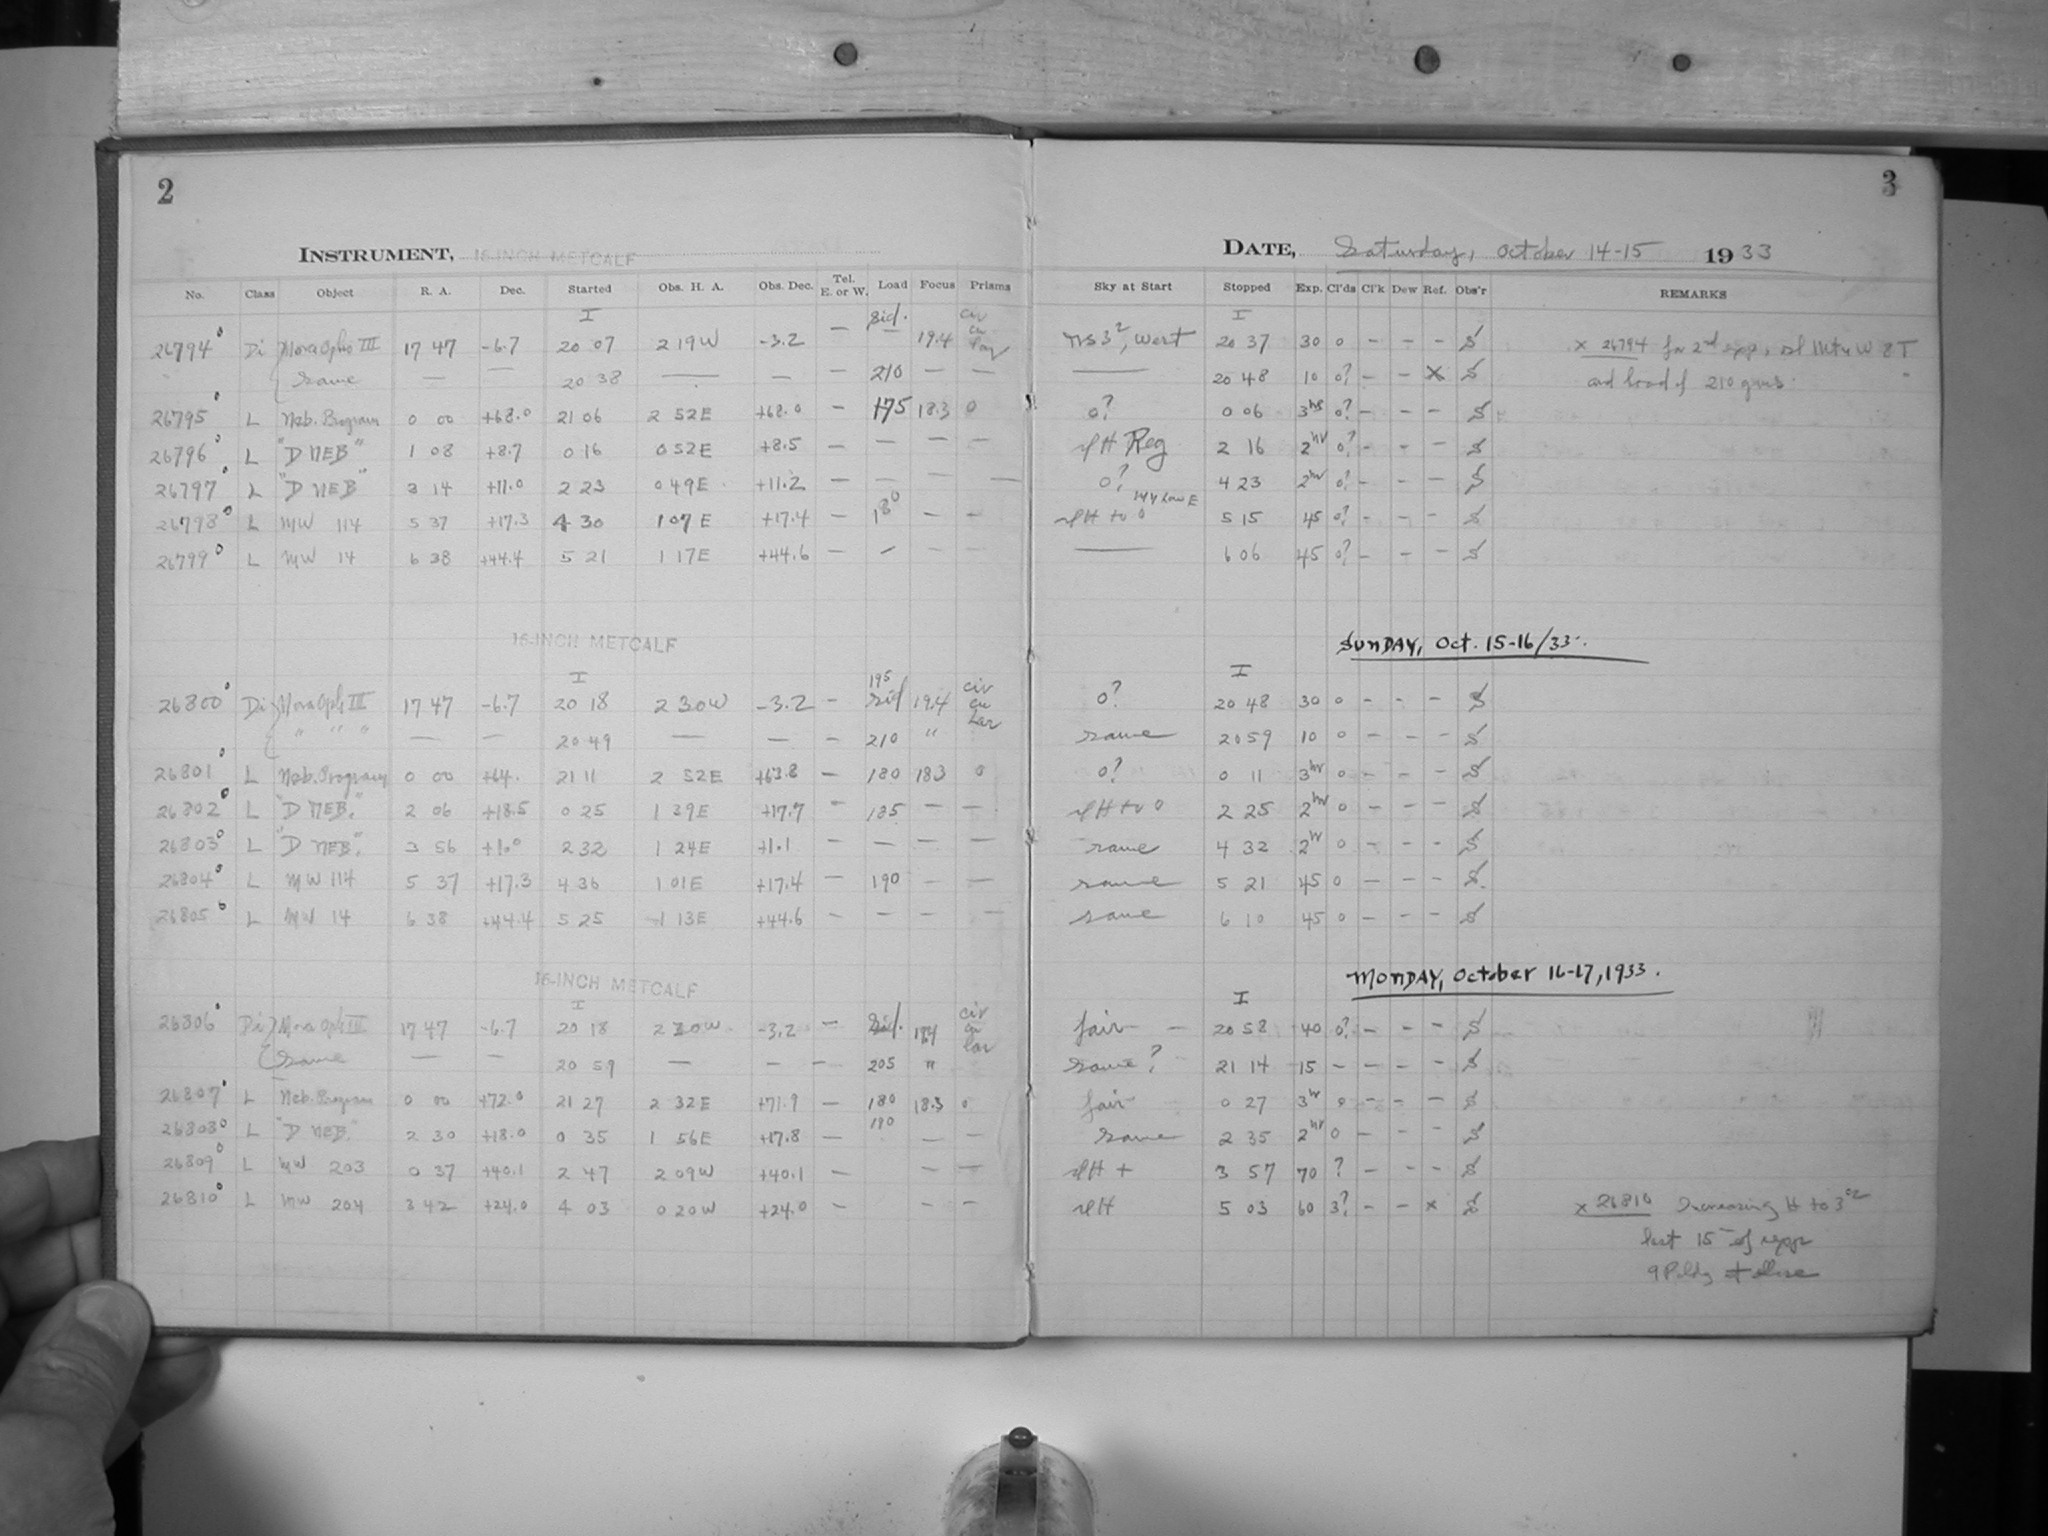 2
INSTRUMENT, 16-INCH METCALF
No. Class Object R. A. Dec. Started Obs. H. A. Obs. Dec. Tel. E. or W. Load Focus Prisms
I
26794 Di Nova Oph III 17 47 -6.7 20 07 2 19W -3.2 — Sid. 19.4 cir cu lar
same — — 20 38 — — — 210 — —
26795 L Neb. Program 0 00 +68.0 21 06 2 52E +68.0 — 175 18.3 0
26796 L "D NEB" 1 08 +8.7 0 16 0 52E +8.5 — — — —
26797 L "D NEB" 3 14 +11.0 2 23 0 49E +11.2 — — — —
26798 L MW 114 5 37 +17.3 4 30 1 07 E +17.4 — 180 — —
26799 L MW 14 6 38 +44.4 5 21 1 17E +44.6 — — — —
16-INCH METCALF
I
26800 Di Nova Oph III 17 47 -6.7 20 18 2 30W -3.2 — 195 Sid 19.4 cir cu lar
" " " — — 20 49 — — — 210 "
26801 L Neb. Program 0 00 +64. 21 11 2 52E +63.8 — 180 18.3 0
26802 L "D NEB." 2 06 +18.5 0 25 1 39E +17.7 — 185 — —
26803 L "D NEB." 3 56 +1.0 2 32 1 24E +1.1 — — — —
26804 L MW 114 5 37 +17.3 4 36 1 01E +17.4 — 190 — —
26805 L MW 14 6 38 +44.4 5 25 1 13E +44.6 — — — —
16-INCH METCALF
I
26806 Di Nova Oph III 17 47 -6.7 20 18 2 30W -3.2 — Sid. 19.4 cir cu lar
same — — 20 59 — — — 205 "
26807 L Neb. Program 0 00 +72.0 21 27 2 32E +71.9 — 180 18.3 0
26808 L "D NEB." 2 30 +18.0 0 35 1 56E +17.8 — 190 — —
26809 L MW 203 0 37 +40.1 2 47 2 09W +40.1 — — —
26810 L MW 204 3 42 +24.0 4 03 0 20W +24.0 — — —
3
DATE, Saturday, October 14-15 1933
Sky at Start Stopped Exp. Cl'ds Cl'k Dew Ref. Obs'r REMARKS
I
west 20 37 30 0 — — — S × 26794 for 2nd exp,
— 20 48 10 0? — — × S and load of 210 gms.
0? 0 06 3hrs 0? — — — S
slH Reg 2 16 2hr 0? — — — S
0? 4 23 2hr 0? — — — S
slH to 0 low E 5 15 45 0? — — — S
— 6 06 45 0? — — — S
SUNDAY, Oct. 15-16/33.
I
0? 20 48 30 0 — — — S
same 20 59 10 0 — — — S
0? 0 11 3hr 0 — — — S
slH to 0 2 25 2hr 0 — — — S
same 4 32 2hr 0 — — — S
same 5 21 45 0 — — — S
same 6 10 45 0 — — — S
MONDAY, October 16-17, 1933.
I
fair 20 58 40 0? — — — S
same? 21 14 15 — — — — S
fair 0 27 3hr 0 — — — S
same 2 35 2hr 0 — — — S
slH + 3 57 70 ? — — — S
slH 5 03 60 3? — — × S × 26810 Increasing H to 3
last 15 of expr